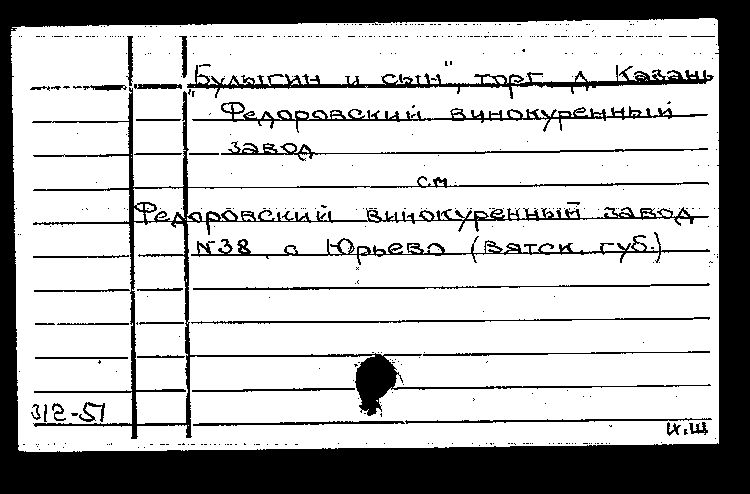 "Булыгин и сын", торг. д. Казань
"Федоровский винокуренный
завод
см
Федоровский винокуренный завод
N38 с Юрьево (вятск. губ.)
312-51
IX.Ш